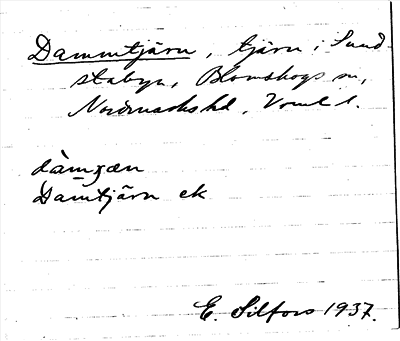 Dammtjärn, tjärn i Sund-
stabyn, Blomskogs sn,
Nordmarks hd, Vrml l.
dàmʒæn
Damtjärn ek
E. Silfors 1937.